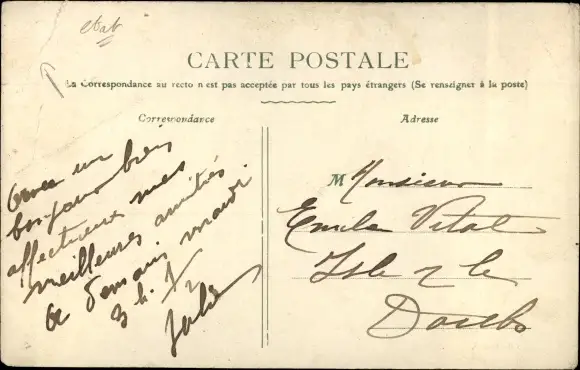 etat
CARTE POSTALE
La Correspondance au recto n'est pas acceptée par tous les pays étrangers (Se renseigner à la poste)
Correspondance
Adresse
Avec un
bonjour bien
affectueux mes
meilleures amitiés
a demain mardi
3 h. 1/2
M Monsieur
Emile Vital
Isle s le
Doubs